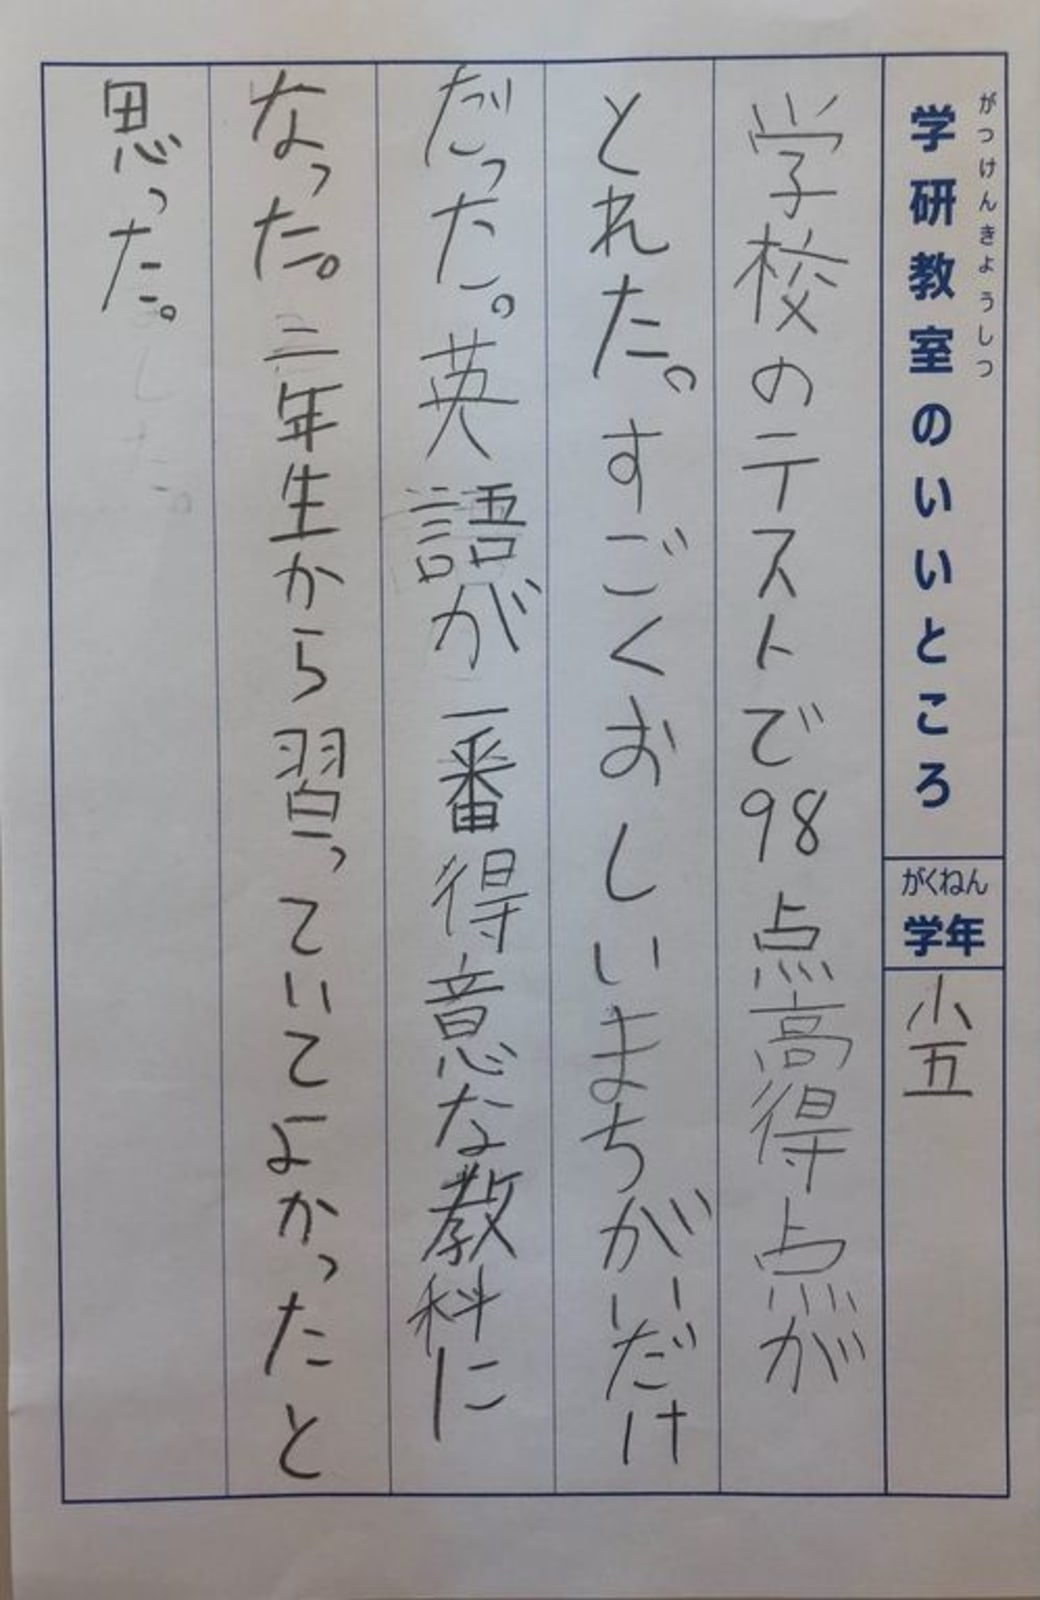 がっけんきょうしつ
学研教室のいいところ
がくねん
学年
小五
学校のテストで98点高得点が
とれた。すごくおしいまちがいだけ
だった。英語が一番得意な教科に
なった。二年生から習っていてよかったと
思った。